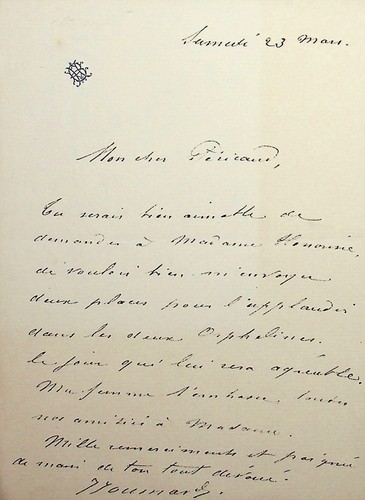 Samedi 23 Mars.
Mon cher Péricaud,
Tu serais bien aimable de
demander à Madame Honorine,
de vouloir bien m'envoyer
deux places pour l'applaudir
dans les deux Orphelines.
le jour qui lui sera agréable.
Ma femme t'embrasse,
nos amitiés à Madame.
Mille remerciements et poignée
de main de ton tout dévoué.